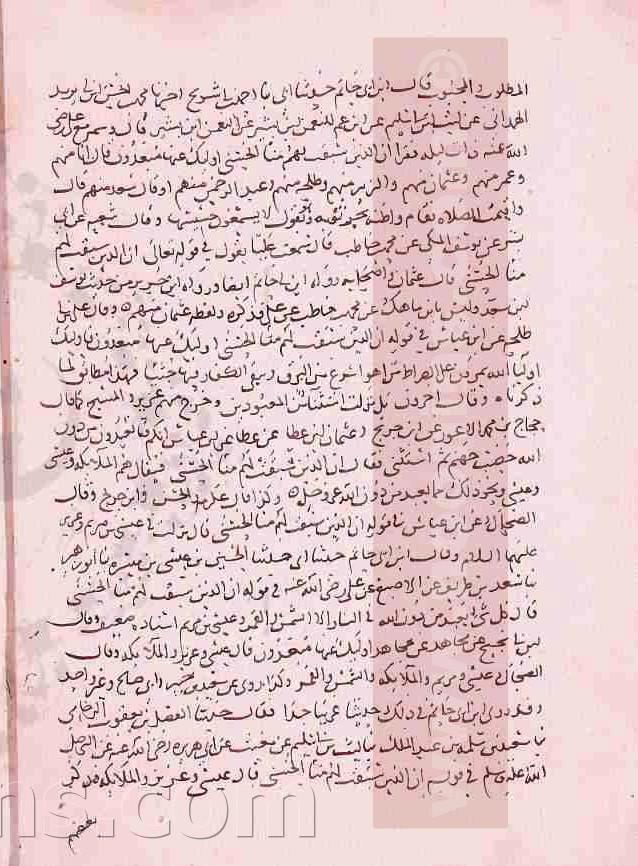 المطلوب والمحبوب قال ابن ابي حاتم حدثنا ابي ثنا احمد بن ابي سريج اخبرنا محمد بن الحسن بن ابي يزيد
الهمداني عن ليث بن ابي سليم عن ابن عم النعمن بن بشير عن النعمن ابن بشير قال وسمر مع علي رضي
الله عنه ذات ليله فقرا ان الذين سبقت لهم منا الحسنى اولئك عنها مبعدون قال انا منهم
وعمر منهم وعثمان منهم والزبير منهم وطلحه منهم وعبد الرحمن منهم او قال سعد منهم قال
واقيمت الصلاه فقام واظنه يجر ثوبه وهو يقول لا يسمعون حسيسها وقال شعبه عن ابي
بشر عن يوسف المكي عن محمد بن حاطب قال سمعت عليا يقول في قوله تعالى ان الذين سبقت لهم
منا الحسنى قال عثمان واصحابه رواه ابن ابي حاتم ايضا ورواه ابن جرير من حديث يوسف
ابن سعد وليس بابن ماهك عن محمد بن حاطب عن علي فذكره ولفظه عثمان منهم وقال علي بن ابي
طلحه عن ابن عباس في قوله ان الذين سبقت لهم منا الحسنى اولئك عنها مبعدون فاوليك
اوليا الله يمرون على الصراط مرا هو اسرع من البرق ويبقى الكفار فيها جثيا فهذا مطابق لما
ذكرناه وقال اخرون بل نزلت استثنا من المعبودين وخرج منهم عزير والمسيح كما قال
حجاج بن محمد الاعور عن ابن جريج وعثمان ابن عطا عن عطا عن ابن عباس انكم وما تعبدون من دون
الله حصب جهنم ثم استثنى فقال ان الذين سبقت لهم منا الحسنى فيقال هم الملايكه وعيسى
ونحو ذلك مما يعبد من دون الله عز وجل وكذا قال عكرمه والحسن وابن جريج وقال
الضحاك عن ابن عباس في قوله ان الذين سبقت لهم منا الحسنى قال نزلت في عيسى بن مريم وعزير
عليهما السلام وقال ابن ابي حاتم حدثنا ابي حدثنا الحسين بن عيسى بن ميسره ثنا ابو زهير
ثنا سعد بن طريف عن الاصبغ عن علي رضي الله عنه في قوله ان الذين سبقت لهم منا الحسنى
قال كل شي يعبد من دون الله في النار الا الشمس والقمر وعيسى بن مريم اسناده ضعيف وقال
ابن ابي نجيح عن مجاهد اوليك عنها مبعدون قال عيسى وعزير والملايكه وقال
الضحاك عيسى ومريم والملايكه والشمس والقمر وكذا روى عن سعيد بن جبير وابي صالح وغير واحد
وقد روى ابن ابي حاتم في ذلك حديثا غريبا جدا فقال حدثنا الفضل بن يعقوب الرخامي
ثنا سعيد بن مسلمه بن عبد الملك ثنا ليث بن ابي سليم عن مغيث عن ابي هريره رضي الله عنه عن النبي صلى
الله عليه وسلم في قوله ان الذين سبقت لهم منا الحسنى قال عيسى وعزير والملايكه وذكر
بعضهم